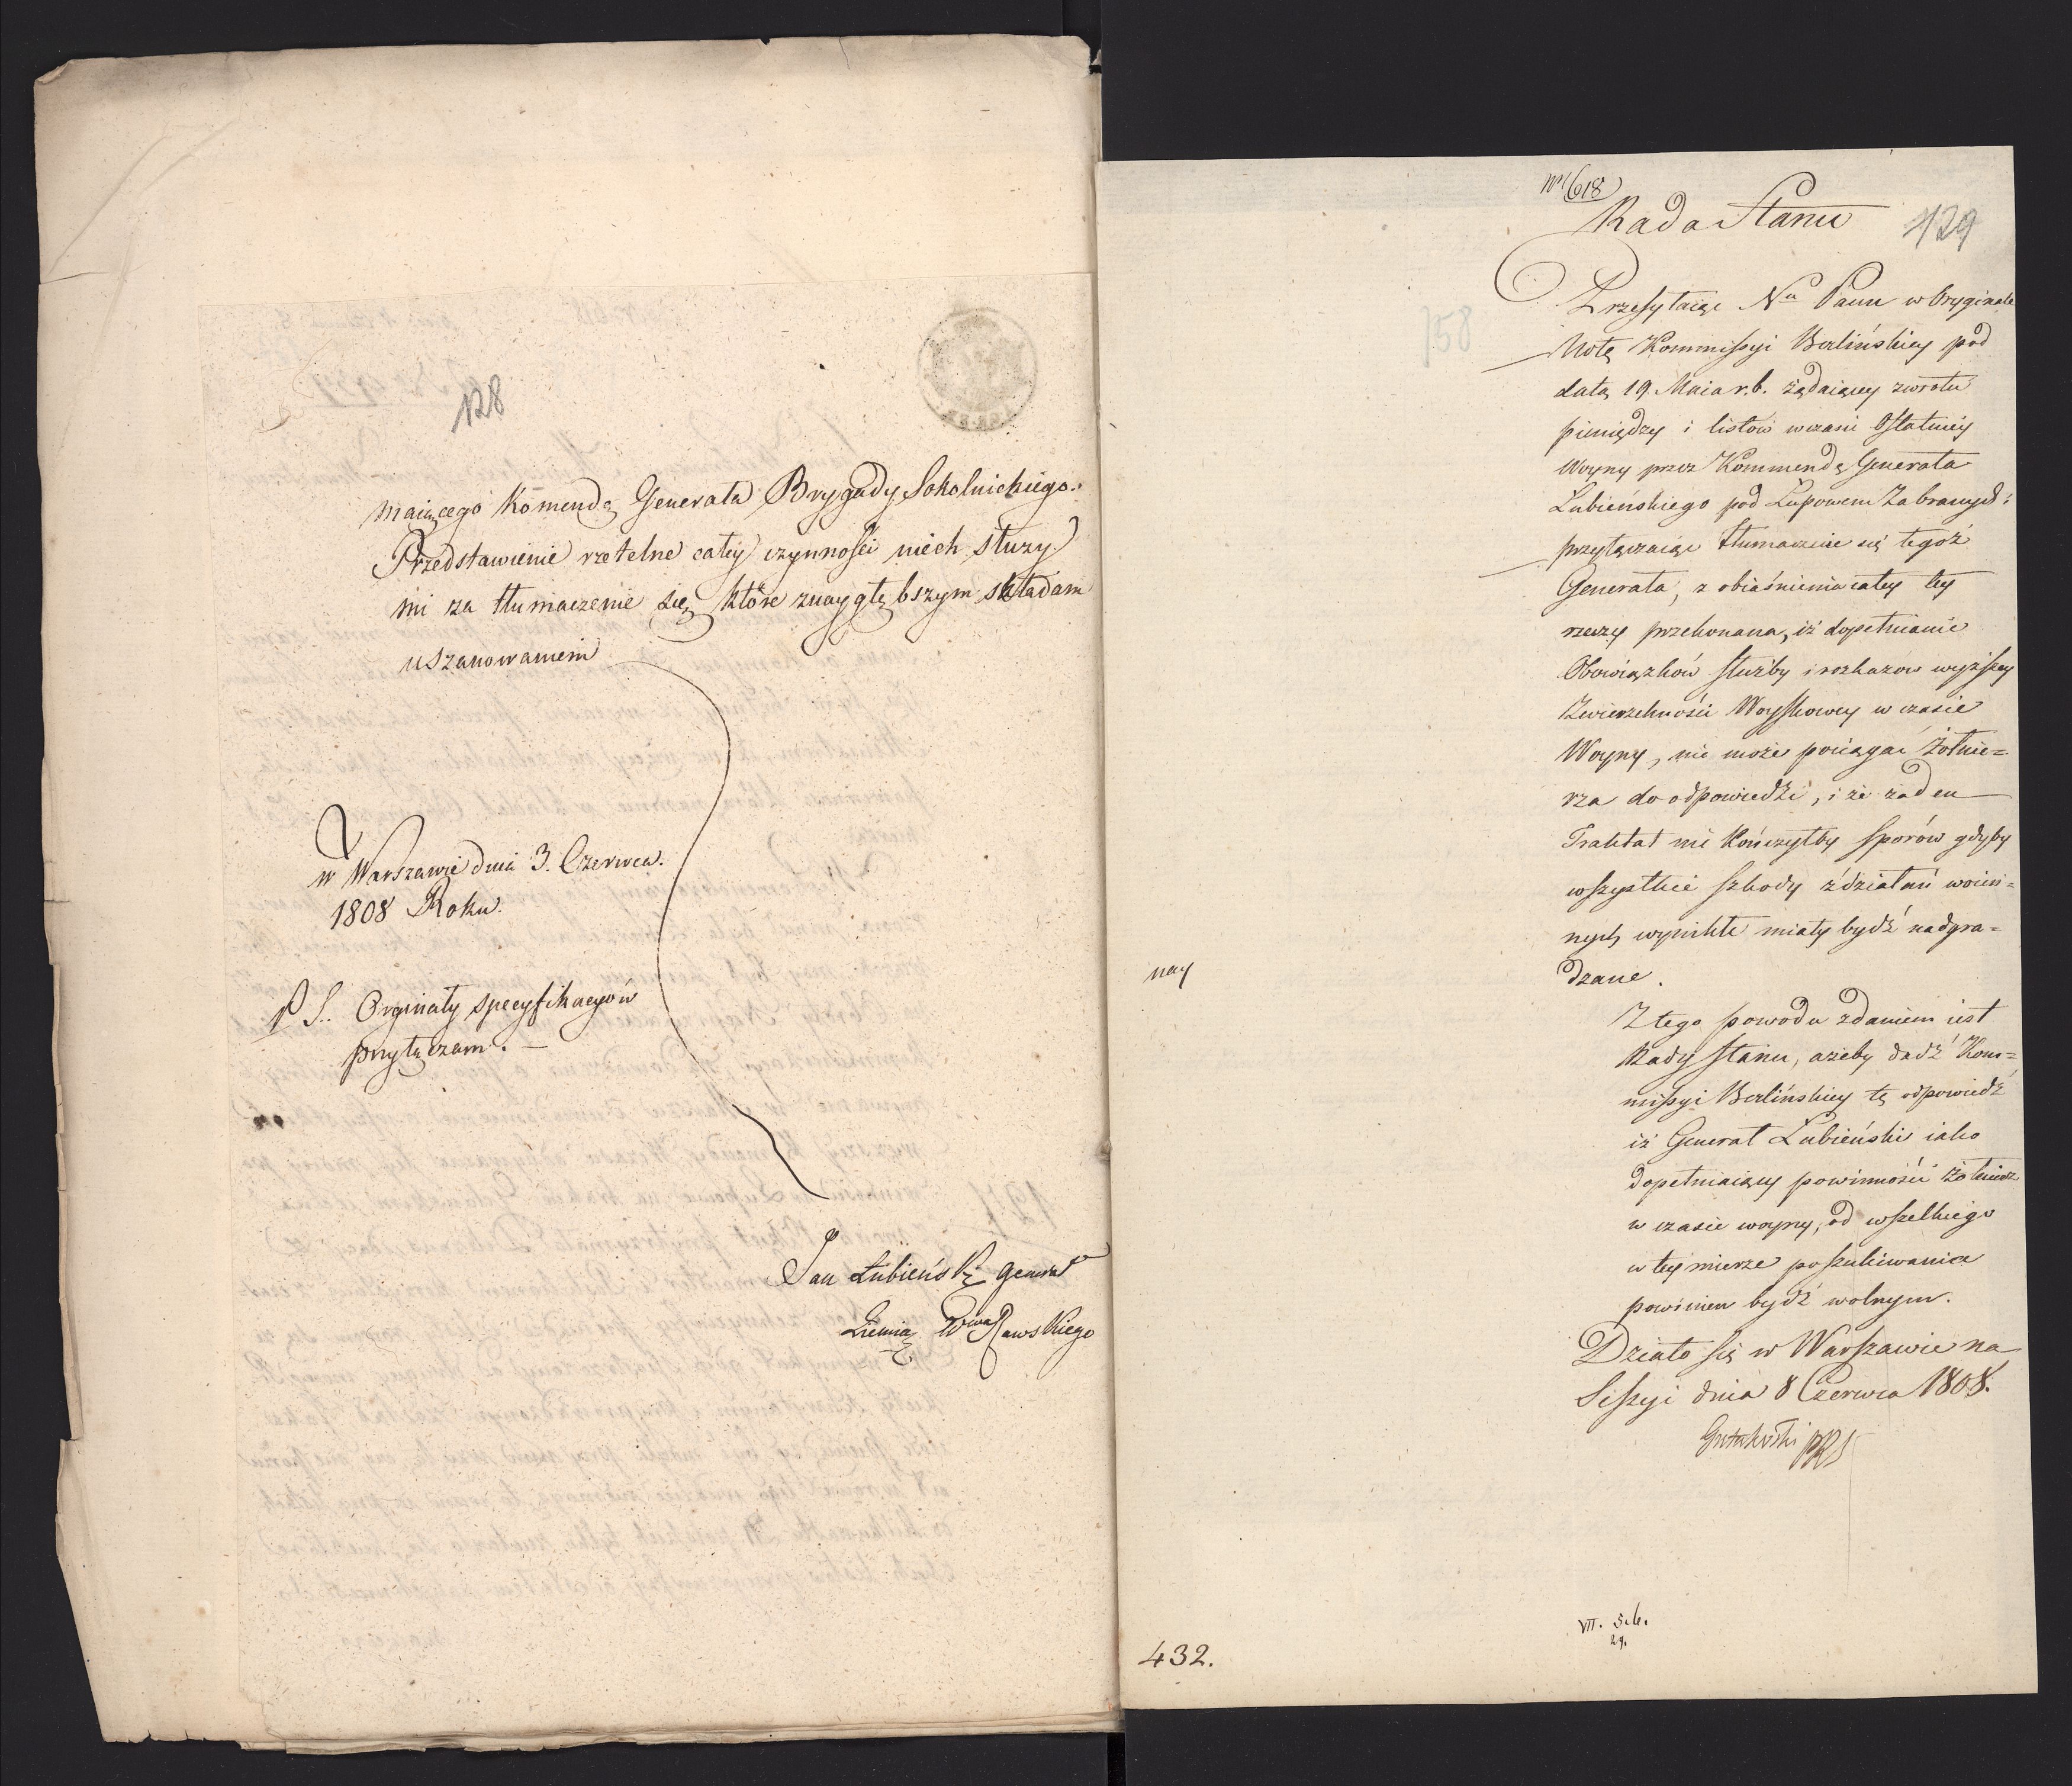 128
maiącego Komendą Generała Brygady Sokolnickiego.
Przedstawienie rzetelne całey czynności niech służy
mi za tłumaczenie się, które znaygłębszym składam
uszanowaniem
w Warszawie dnia 3. Czerwca.
1808 Roku.
P S. Orginały specyfikacyow
przyłączam. —
Jan Łubieński Generał
Ziemia Rawskiego
Nr 618
Rada Stanu
129
158
Przesyłaiąc Nu Panu w Oryginale
Notę Kommissyi Berlińskiey pod
datą 19 Maia r. b. żądaiącey zwrotu
pieniędzy i listów w czasie Ostatniey
Woyny przez Kommendę Generała
Lubieńskiego pod Lupowem Zabranych:
przyłączaiąc tłumaczenie się tegoż
Generała, z obiaśnienia całey tey
rzeczy przekonana, iż dopełnianie
Obowiązków służby i rozkazów wyższey
Zwierzchności Woyskowey w czasie
Woyny, nie może pociągać żołnie=
rza do odpowiedzi, i że żaden
Traktat nie kończyłby sporów gdyby
wszystkie szkody z działań woien=
nych wynikłe miały bydź nadgra=
dzane.
nay
Z tego powodu zdaniem iest
Rady Stanu, ażeby dadź Kom=
missyi Berlińskiey tę odpowiedź
iż Generał Lubieński iako
dopełniaiący powinności żołnierz
w czasie woyny, od wszelkiego
w tey mierze poszukiwania
powinien bydź wolnym.
Działo się w Warszawie na
Sessyi dnia 8 Czerwca 1808.
Gutakowski PRS
VII. 5.6.
29.
432.